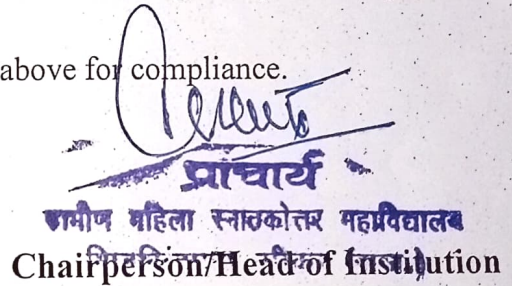 above for compliance.
प्राचार्य
ग्रामीण महिला स्नातकोत्तर महाविद्यालय
Chairperson/Head of Institution